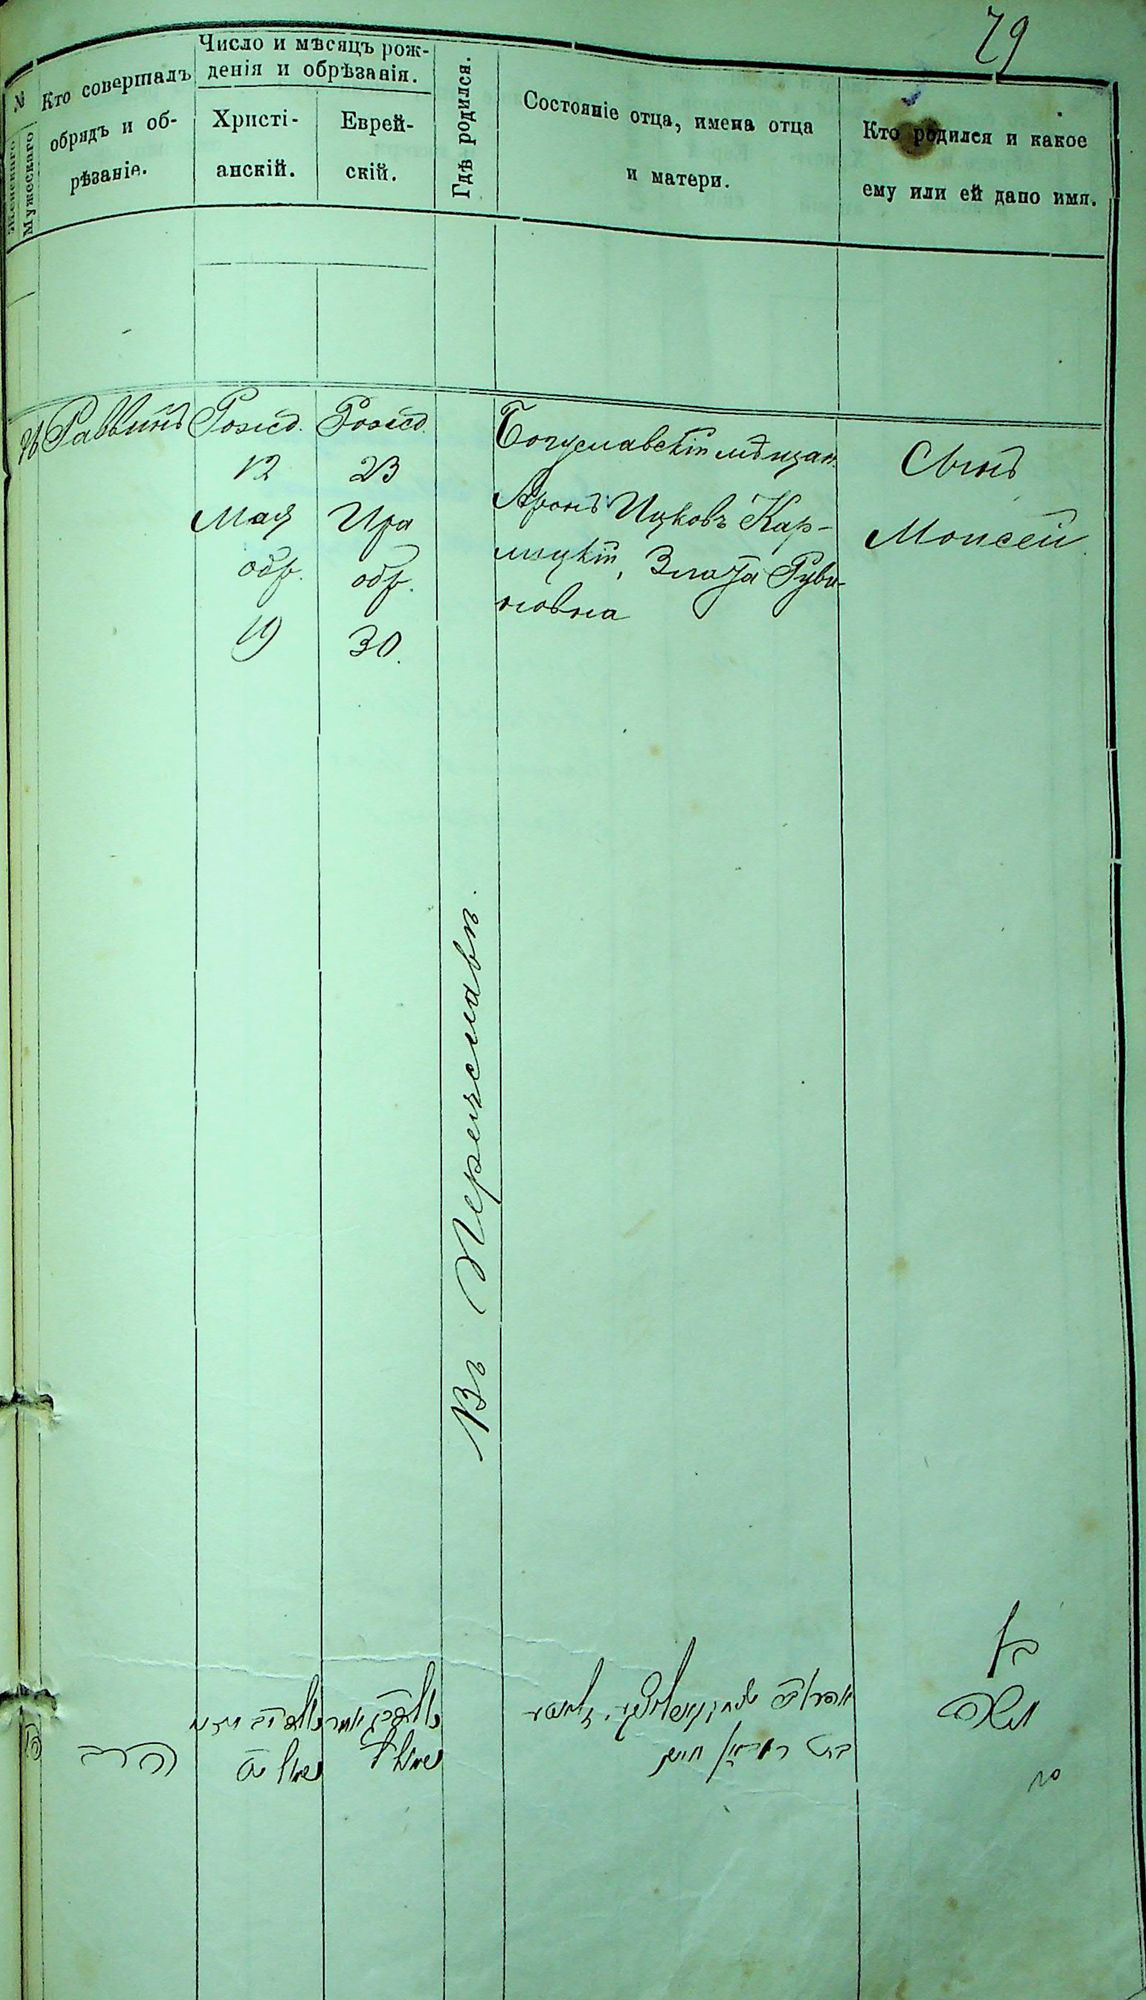 79
№
Женскаго
Мужескаго
Кто совершалъ
обрядъ и об-
рѣзаніе.
Число и мѣсяцъ рож-
денія и обрѣзанія.
Христі-
анскій.
Еврей-
скій.
Гдѣ родился.
Состояніе отца, имена отца
и матери.
Кто родился и какое
ему или ей дано имя.
Раввинъ
Рожд.
12
Мая
обр.
19
Рожд.
23
Ира
обр.
30.
Въ Переяславѣ.
Богуславскій мѣщан.
Аронъ Ицковъ Кар-
лицкій, Злата Руви-
новна
Сынъ
Моисей
הרב
בן
משה